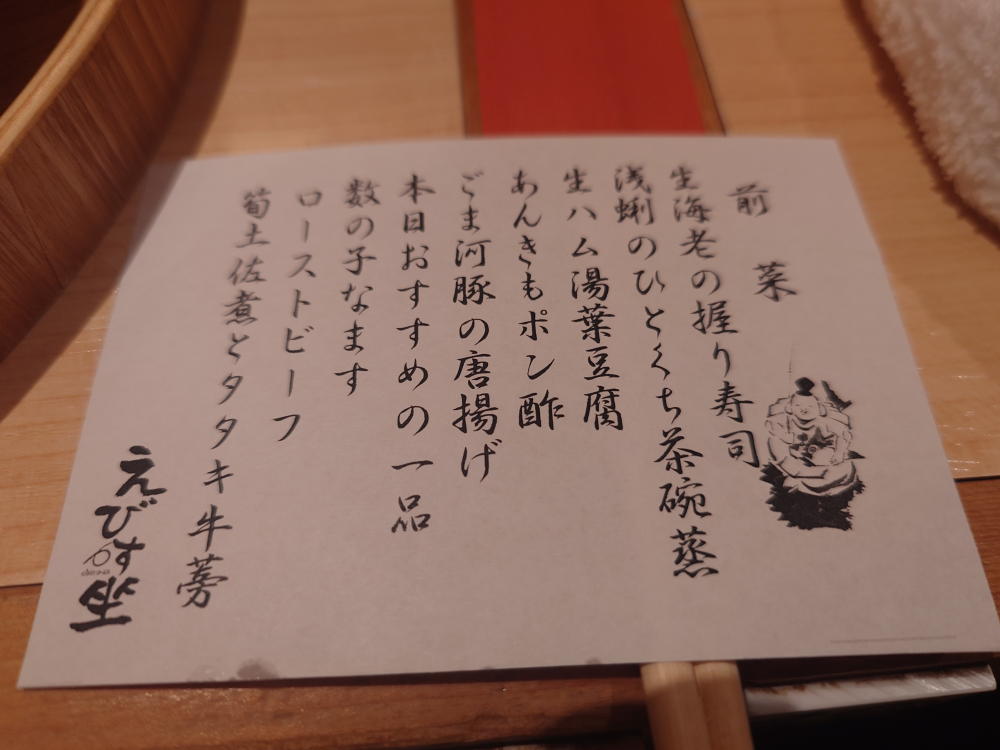 前菜
生海老の握り寿司
浅蜊のひとくち茶碗蒸
生ハム湯葉豆腐
あんきもポン酢
ごま河豚の唐揚げ
本日おすすめの一品
数の子なます
ローストビーフ
筍土佐煮とタタキ牛蒡
えびす坐